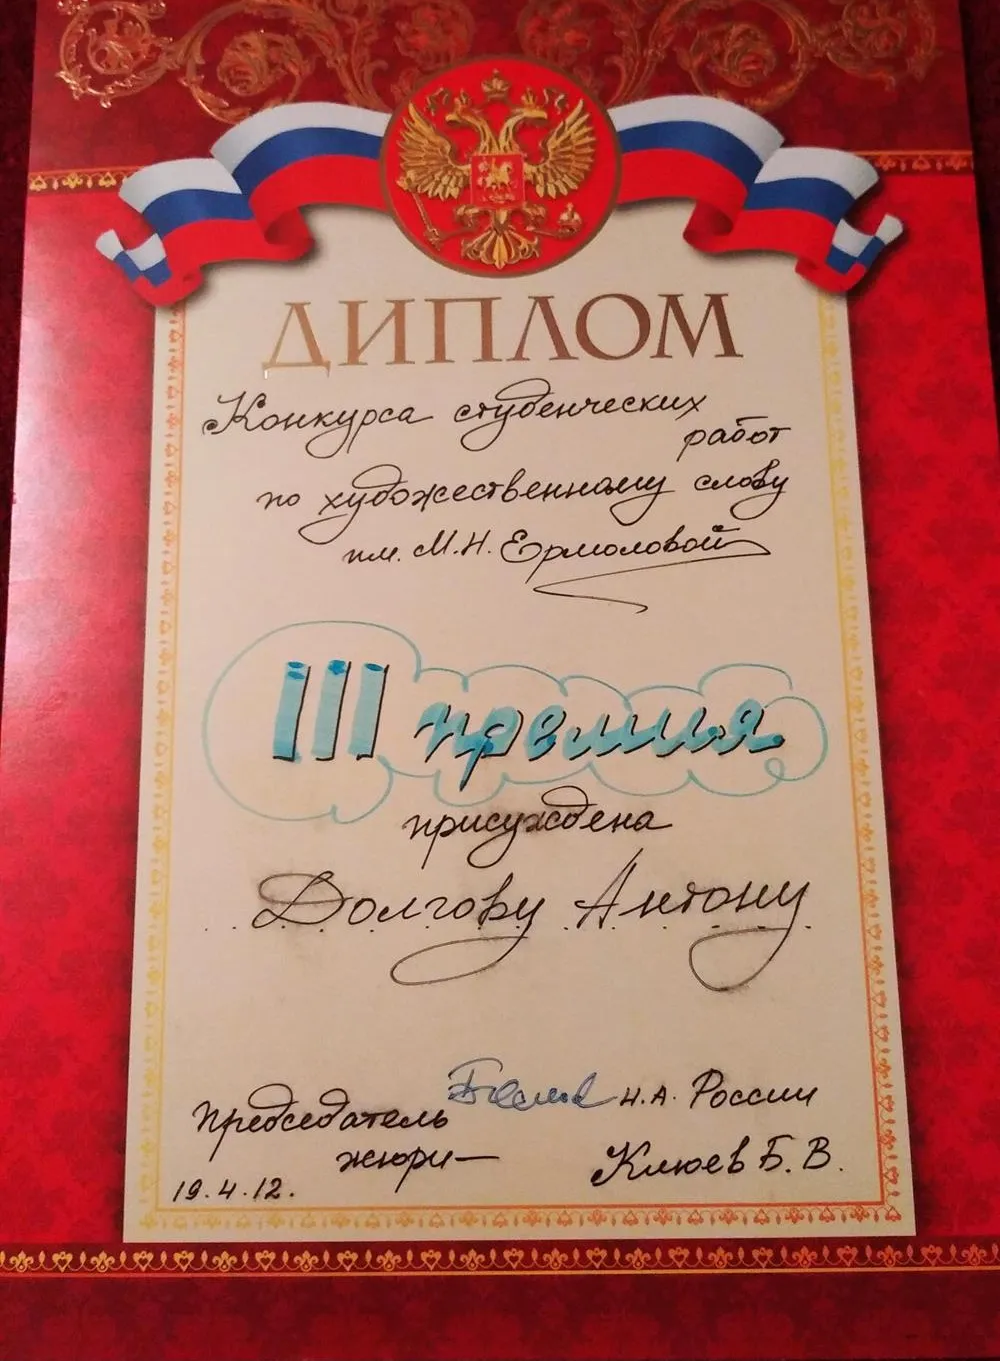 ДИПЛОМ
Конкурса студенческих
работ
по художественному слову
им. М.Н. Ермоловой
III премия
присуждена
Долгову Антону
Председатель
жюри —
Н.А. России
Клюев Б.В.
19.4.12.